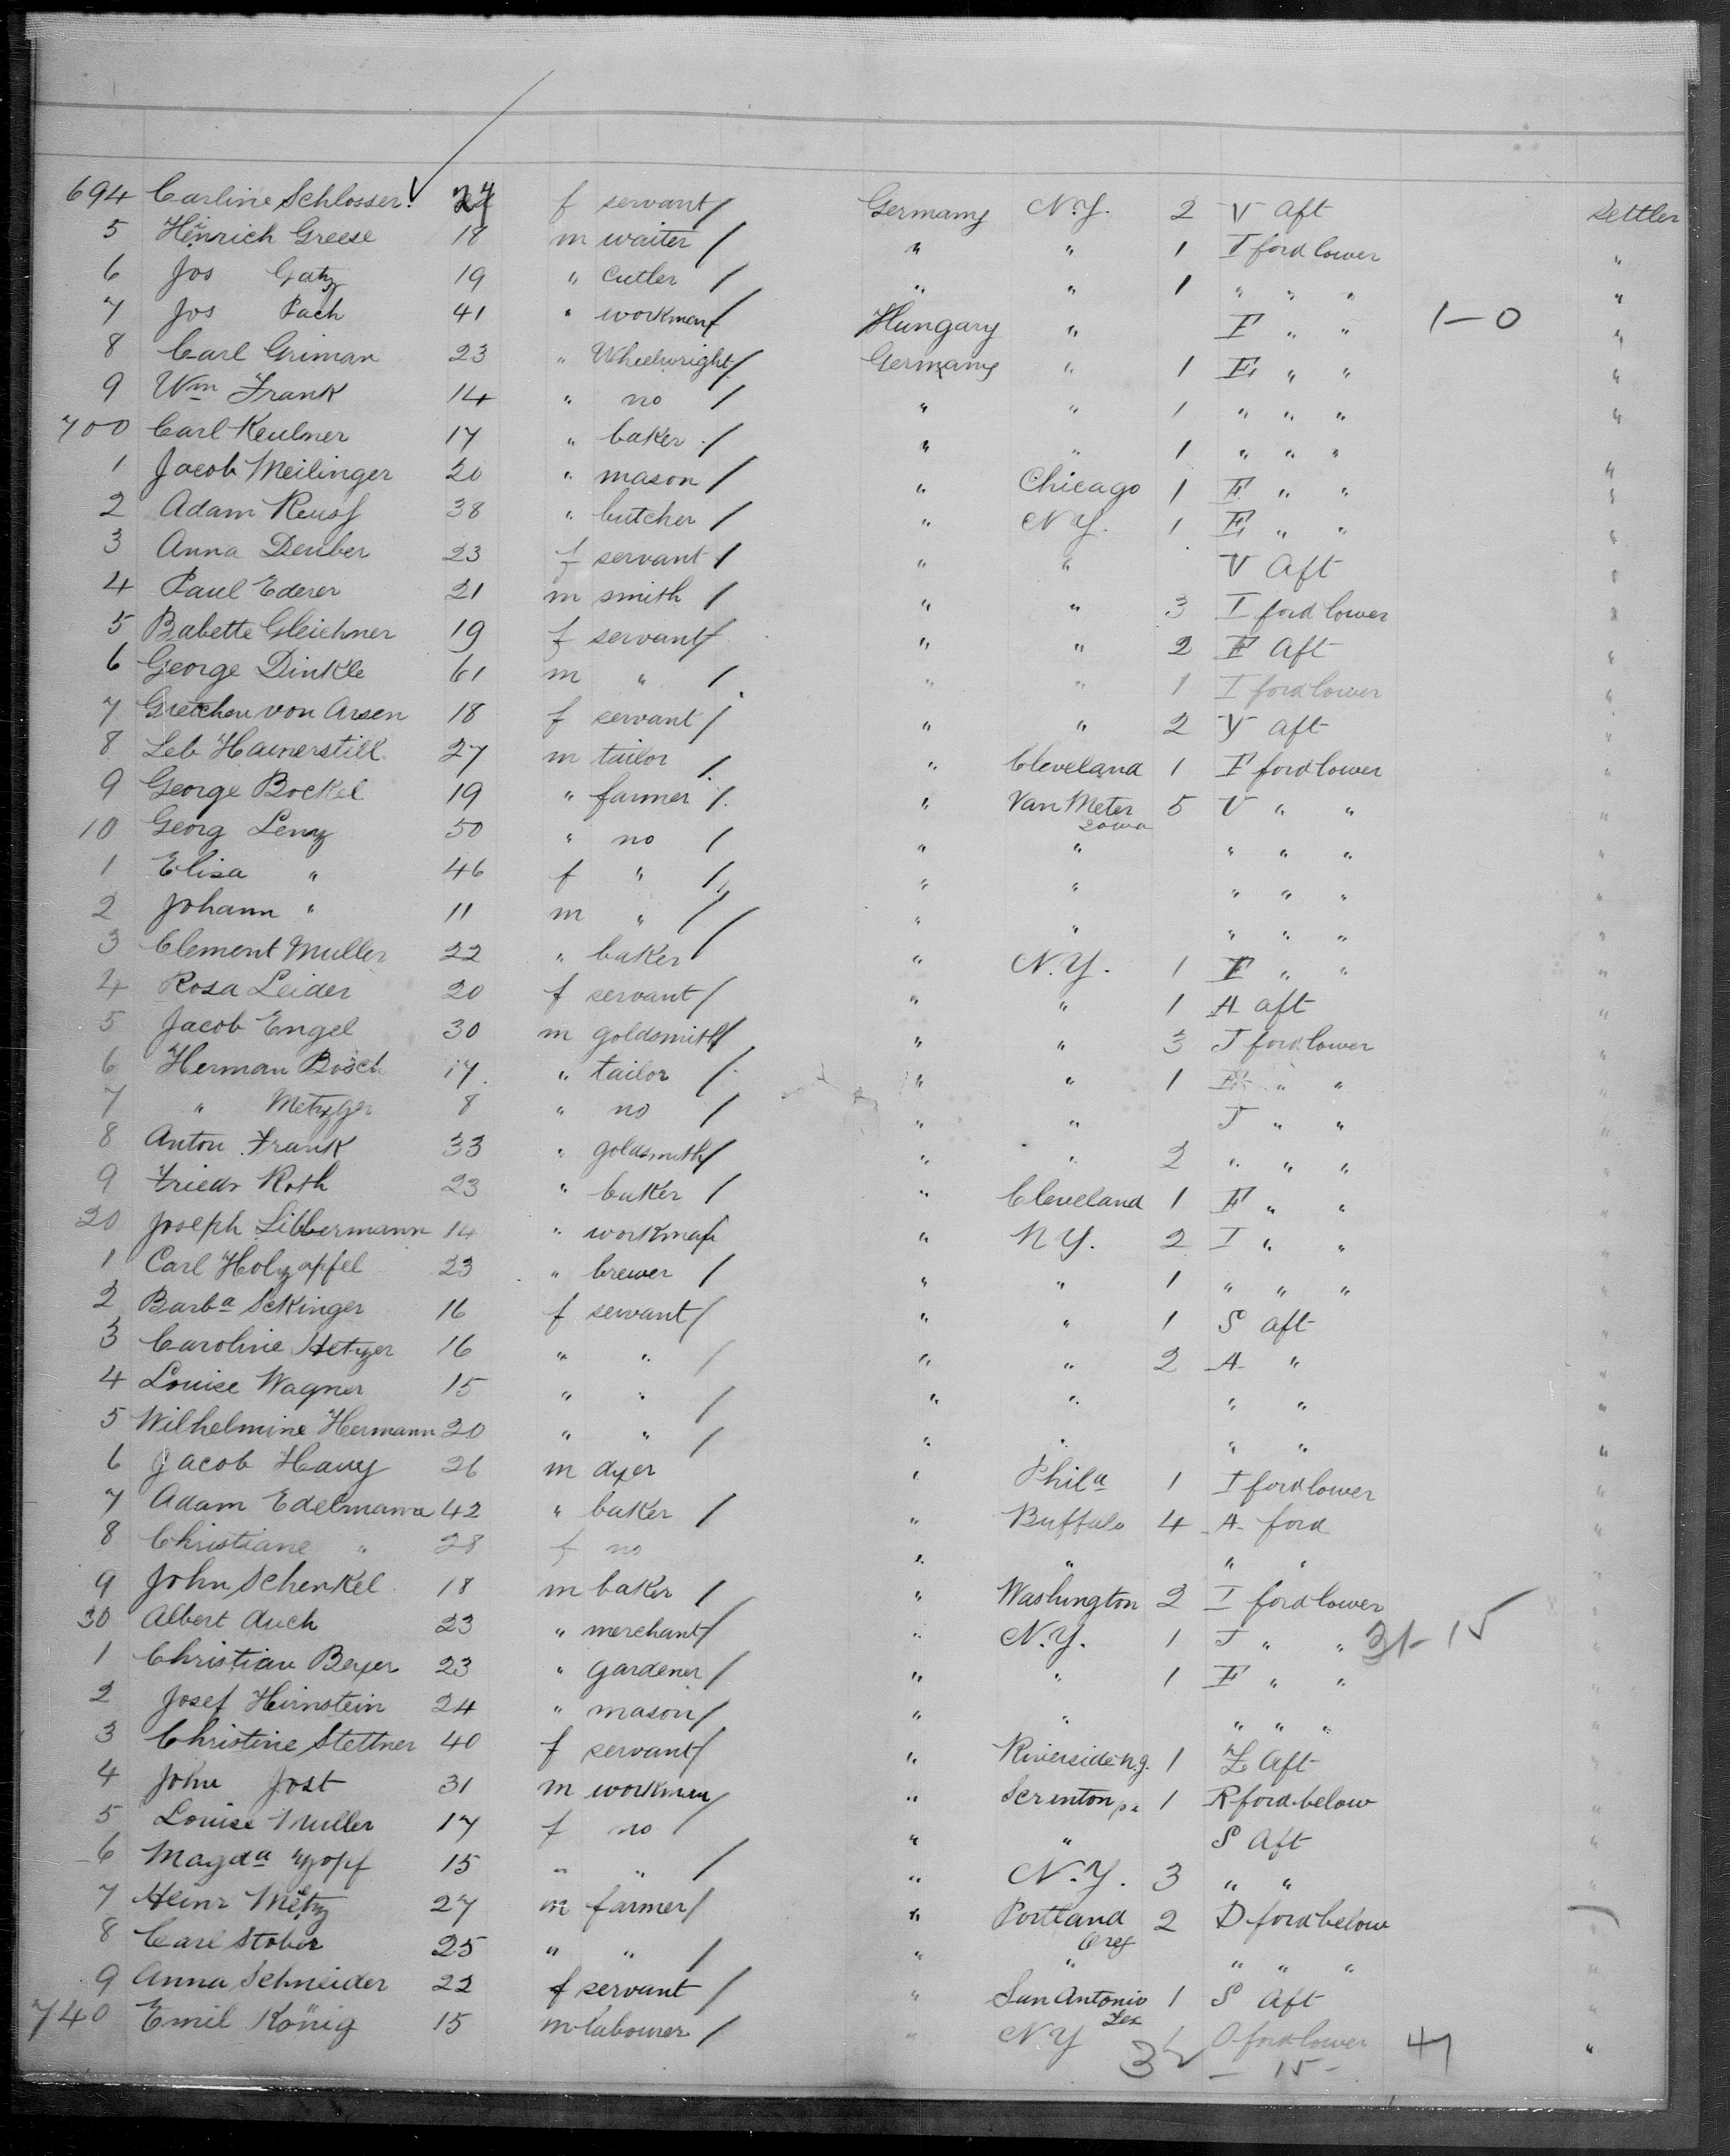 694 Carline Schlosser 24 f servant / Germany N.Y. 2 V Aft Settler
5 Heinrich Greese 18 m waiter / " " 1 I ford lower "
6 Jos Gatz 19 " cutler / " " 1 " " " "
7 Jos Pach 41 " workman / Hungary " I " " 1-0 "
8 Carl Griman 23 " Wheelwright / Germany " 1 E " " "
9 Wm Frank 14 " no / " " 1 " " " "
700 Carl Keulner 17 " baker / " " 1 " " " "
1 Jacob Meilinger 20 " mason / " Chicago 1 E " " "
2 Adam Reuss 38 " butcher / " N.Y. 1 E " " "
3 Anna Deuber 23 f servant / " " V Aft "
4 Paul Ederer 21 m smith / " " 3 I ford lower "
5 Babette Gleichner 19 f servant / " " 2 Aft "
6 George Dinkle 61 m " / " " 1 I ford lower "
7 Gretchen von Arsen 18 f servant / " " 2 V aft "
8 Leb 27 m tailor / " Cleveland 1 I ford lower "
9 George Bockel 19 " farmer / " Van Meter Iowa 5 V " " "
10 Georg Lenz 50 " no / " " " " " "
1 Elisa " 46 f " / " " " " " "
2 Johann " 11 m " / " " " " " "
3 Clement Muller 22 " baker / " N.Y. 1 I " " "
4 Rosa Leider 20 f servant / " " 1 A aft "
5 Jacob Engel 30 m goldsmith / " " 3 J ford lower "
6 Herman Bosch 17 " tailor / " " 1 " " "
7 " Metzger 8 " no / " " J " " "
8 Anton Frank 33 " goldsmith / " " 2 " " " "
9 Friedr Roth 23 " baker / " Cleveland 1 " " "
20 Joseph Libbermann 14 " workman " N.Y. 2 I " " "
1 Carl Holzapfel 23 " brewer / " " 1 " " " "
2 Barba Sekinger 16 f servant / " " 1 S aft "
3 Caroline Hetzer 16 " " / " " 2 A " "
4 Louise Wagner 15 " " / " " " " "
5 Wilhelmine Hermann 20 " " / " " " " "
6 Jacob Hauy 26 m dyer " Phila 1 I ford lower "
7 Adam Edelmann 42 " baker / " Buffalo 4 A ford "
8 Christiane " 28 f no " " " " "
9 John Schenkel 18 m baker / " Washington 2 I ford lower "
30 Albert Auch 23 " merchant / " N.Y. 1 J " " 31-15 "
1 Christian Beyer 23 " gardener / " " 1 " " "
2 Josef Hirnstein 24 " mason / " " " " " "
3 Christine Stettner 40 f servant / " Riverside N.J. 1 Z Aft "
4 John Jost 31 m workman / " Scrinton pa 1 R ford below "
5 Louise Muller 17 f no / " " S Aft "
6 Magda Zopf 15 " " / " N.Y. 3 " " "
7 Heinr Metz 27 m farmer / " Portland Oreg 2 D ford below
8 Carl Stober 25 " " / " " " " " "
9 Anna Schneider 22 f servant / " San Antonio Tex 1 S Aft "
740 Emil König 15 m labourer / " N.Y. 1 O ford lower 47 "
32 - 15 -